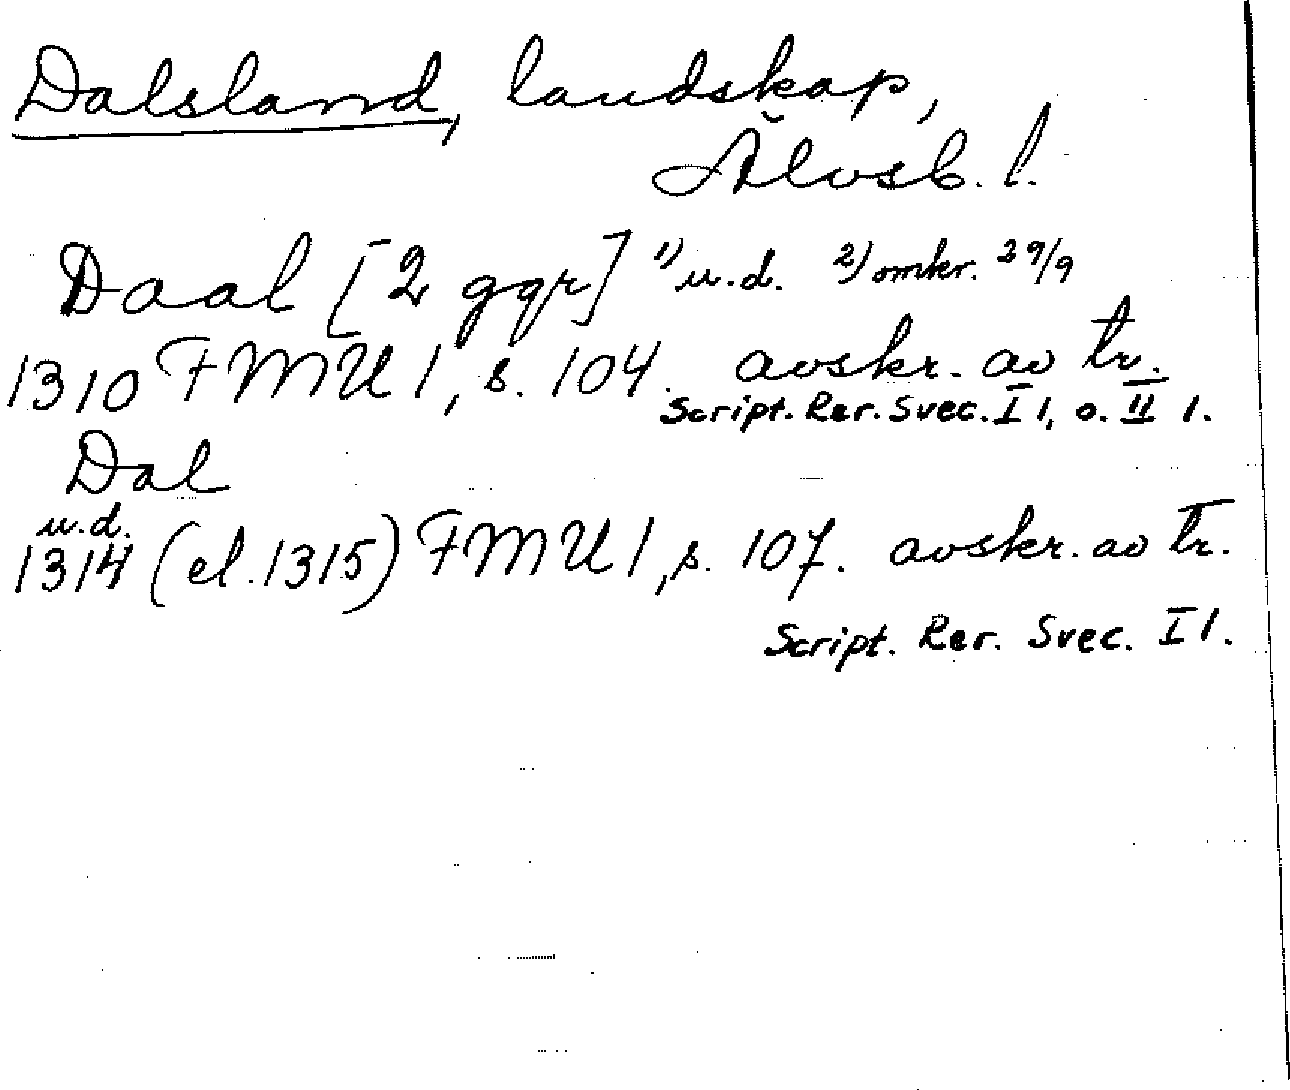 Dalsland, landskap,
Älvsb. l.
Daal [2 ggr] 1) u.d. 2) omkr. 29/9
1310 FMU 1, s. 104. avskr. av tr.
Script. Rer. Svec. I 1, o. II 1.
Dal
u.d.
1314 (el. 1315) FMU 1, s. 107. avskr. av tr.
Script. Rer. Svec. I 1.